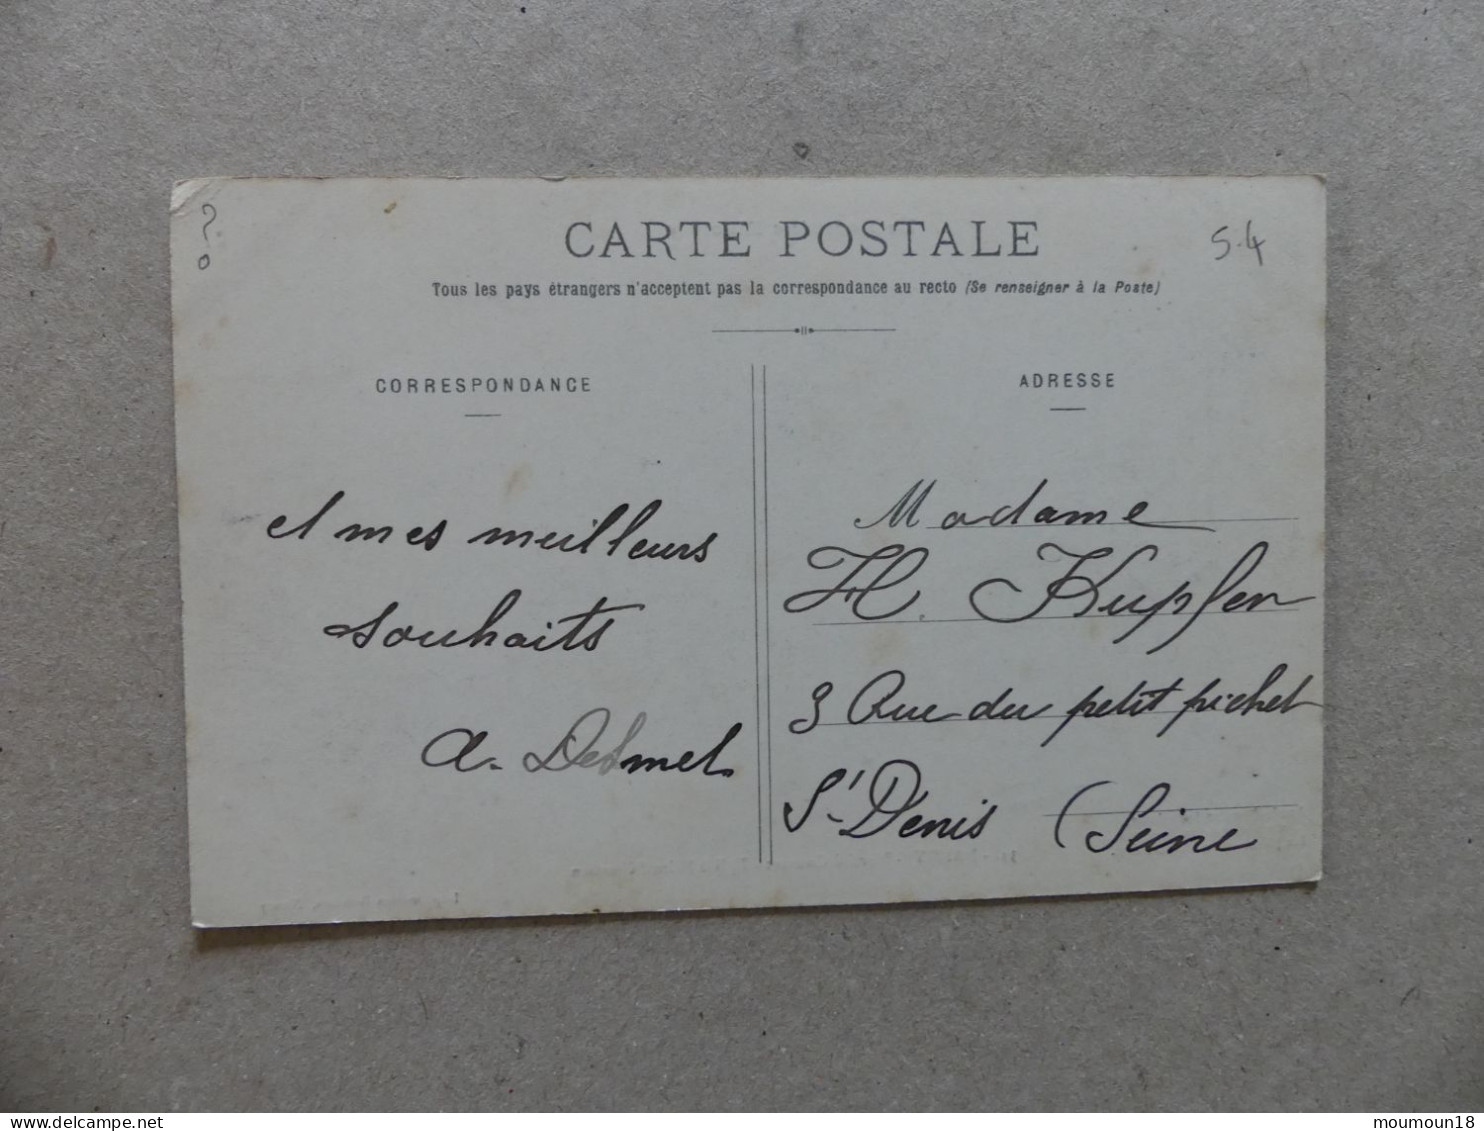 ?
S.4
CARTE POSTALE
Tous les pays étrangers n'acceptent pas la correspondance au recto (Se renseigner à la Poste)
CORRESPONDANCE
et mes meilleurs
souhaits
A. Desmet
ADRESSE
Madame
H. Kupfer
3 Rue du petit pichet
St Denis (Seine
www.delcampe.net
moumoun18